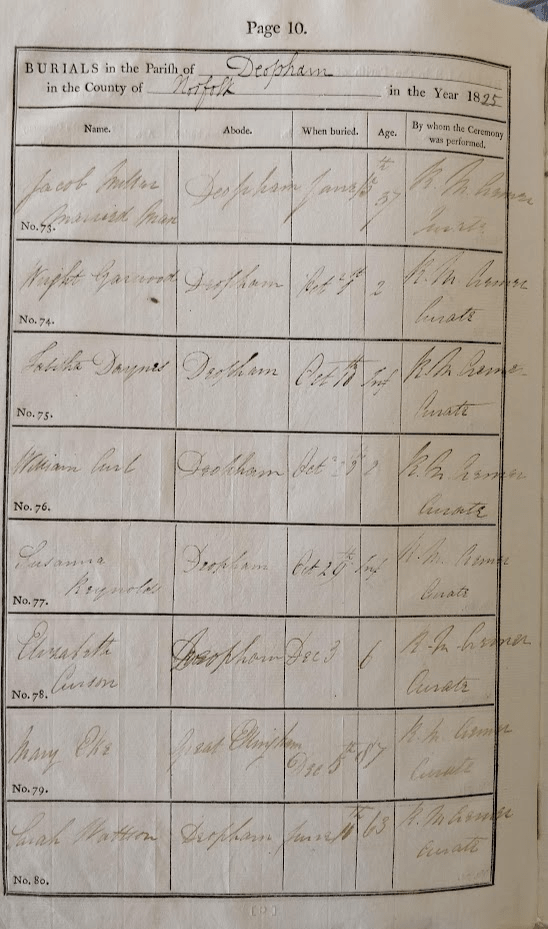 Page 10.
BURIALS in the Parish of Deopham
in the County of Norfolk in the Year 1825
Name. Abode. When buried. Age. By whom the Ceremony was performed.
Jacob Deopham 57
Married Man Curate
No. 73.
Wright Garwood Deopham Oct 2 R. M. Cremer
Curate
No. 74.
Tabitha Daynes Deopham Oct Inf R. M. Cremer
Curate
No. 75.
William Curl Deopham Oct R. M. Cremer
Curate
No. 76.
Susanna Deopham Oct 29th Inf R. M. Cremer
Reynolds Curate
No. 77.
Elizabeth Deopham Dec 3 6 R. M. Cremer
Curson Curate
No. 78.
Mary Eke Great Ellingham Dec 5th R. M. Cremer
Curate
No. 79.
Sarah Wattson Deopham 63 R. M. Cremer
Curate
No. 80.